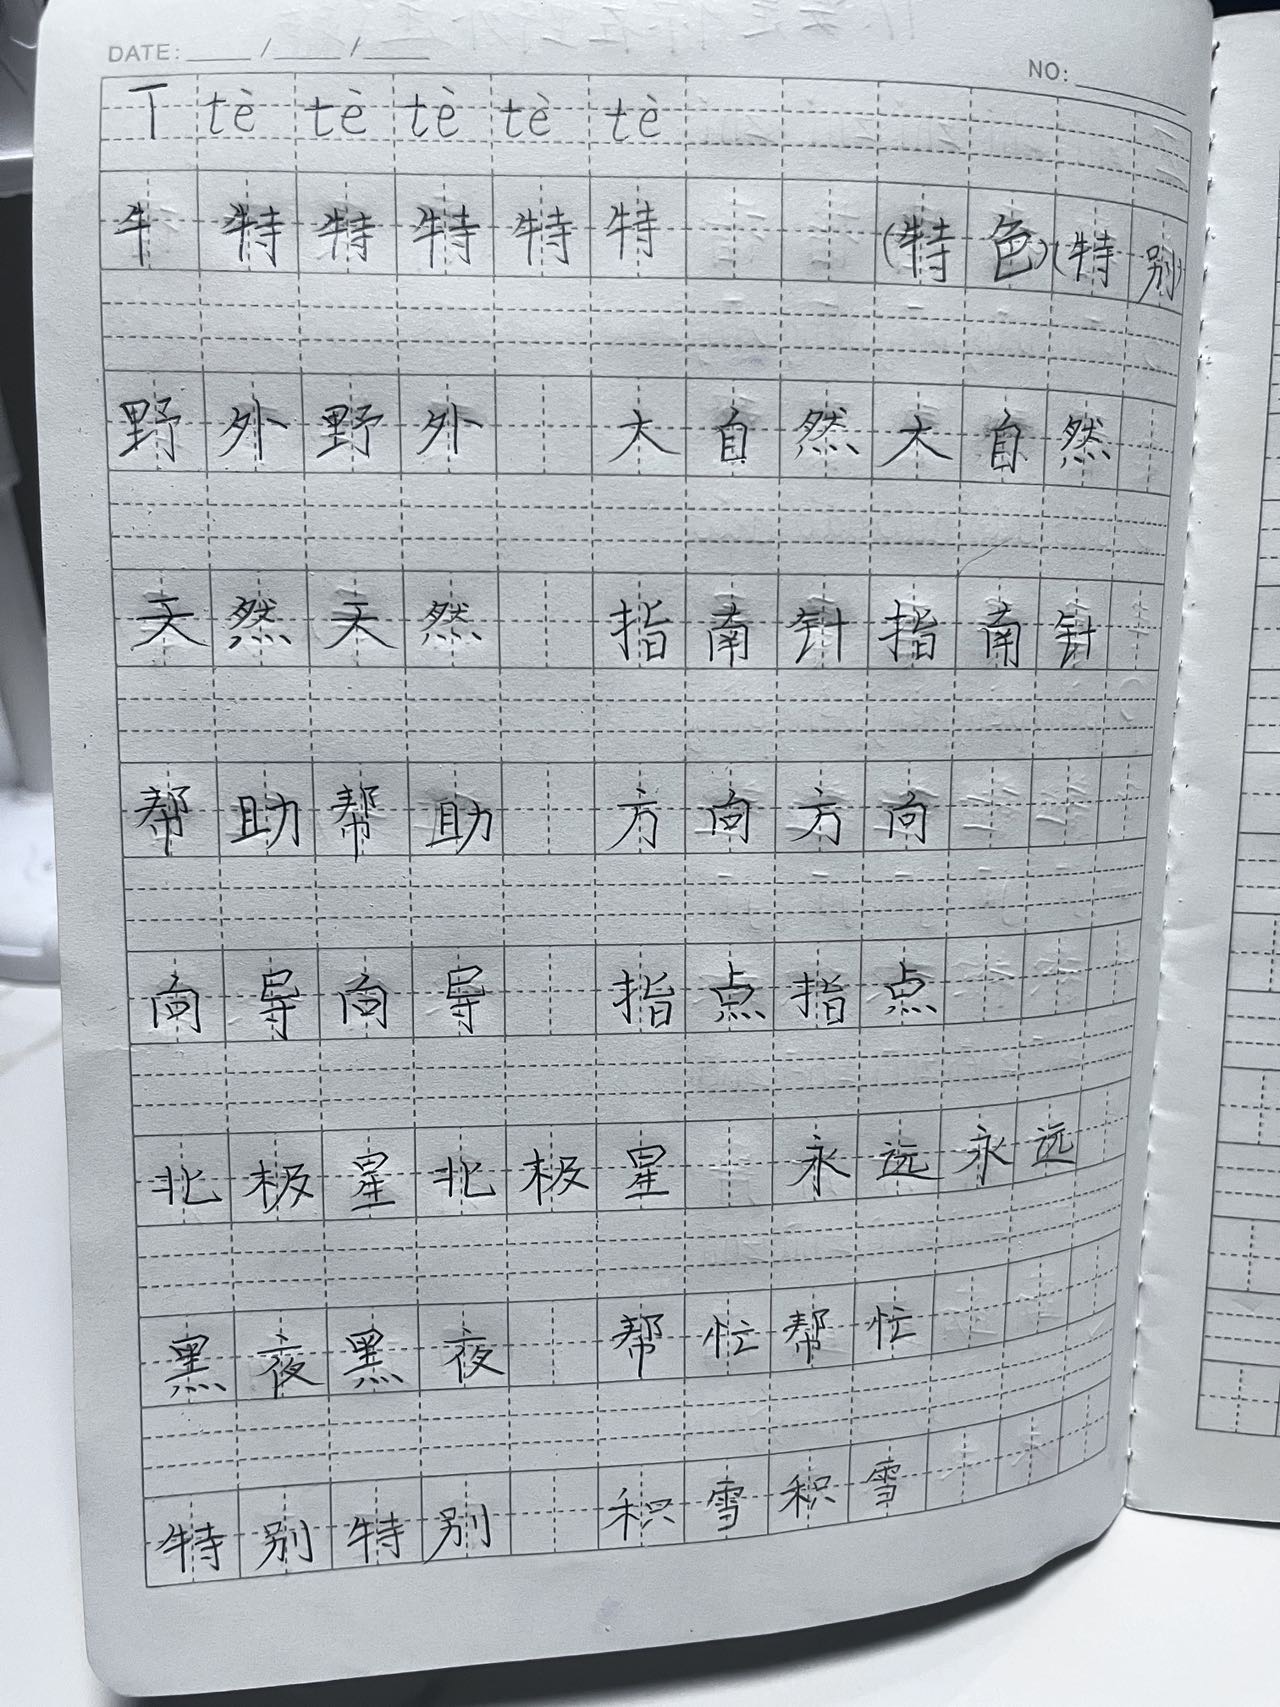 DATE: ____ / ____ / ____
NO: ________
T tè tè tè tè tè
牜 特 特 特 特 特 (特色)(特别)
野外野外 大自然大自然
天然天然 指南针指南针
帮助帮助 方向方向
向导向导 指点指点
北极星北极星 永远永远
黑夜黑夜 帮忙帮忙
特别特别 积雪积雪